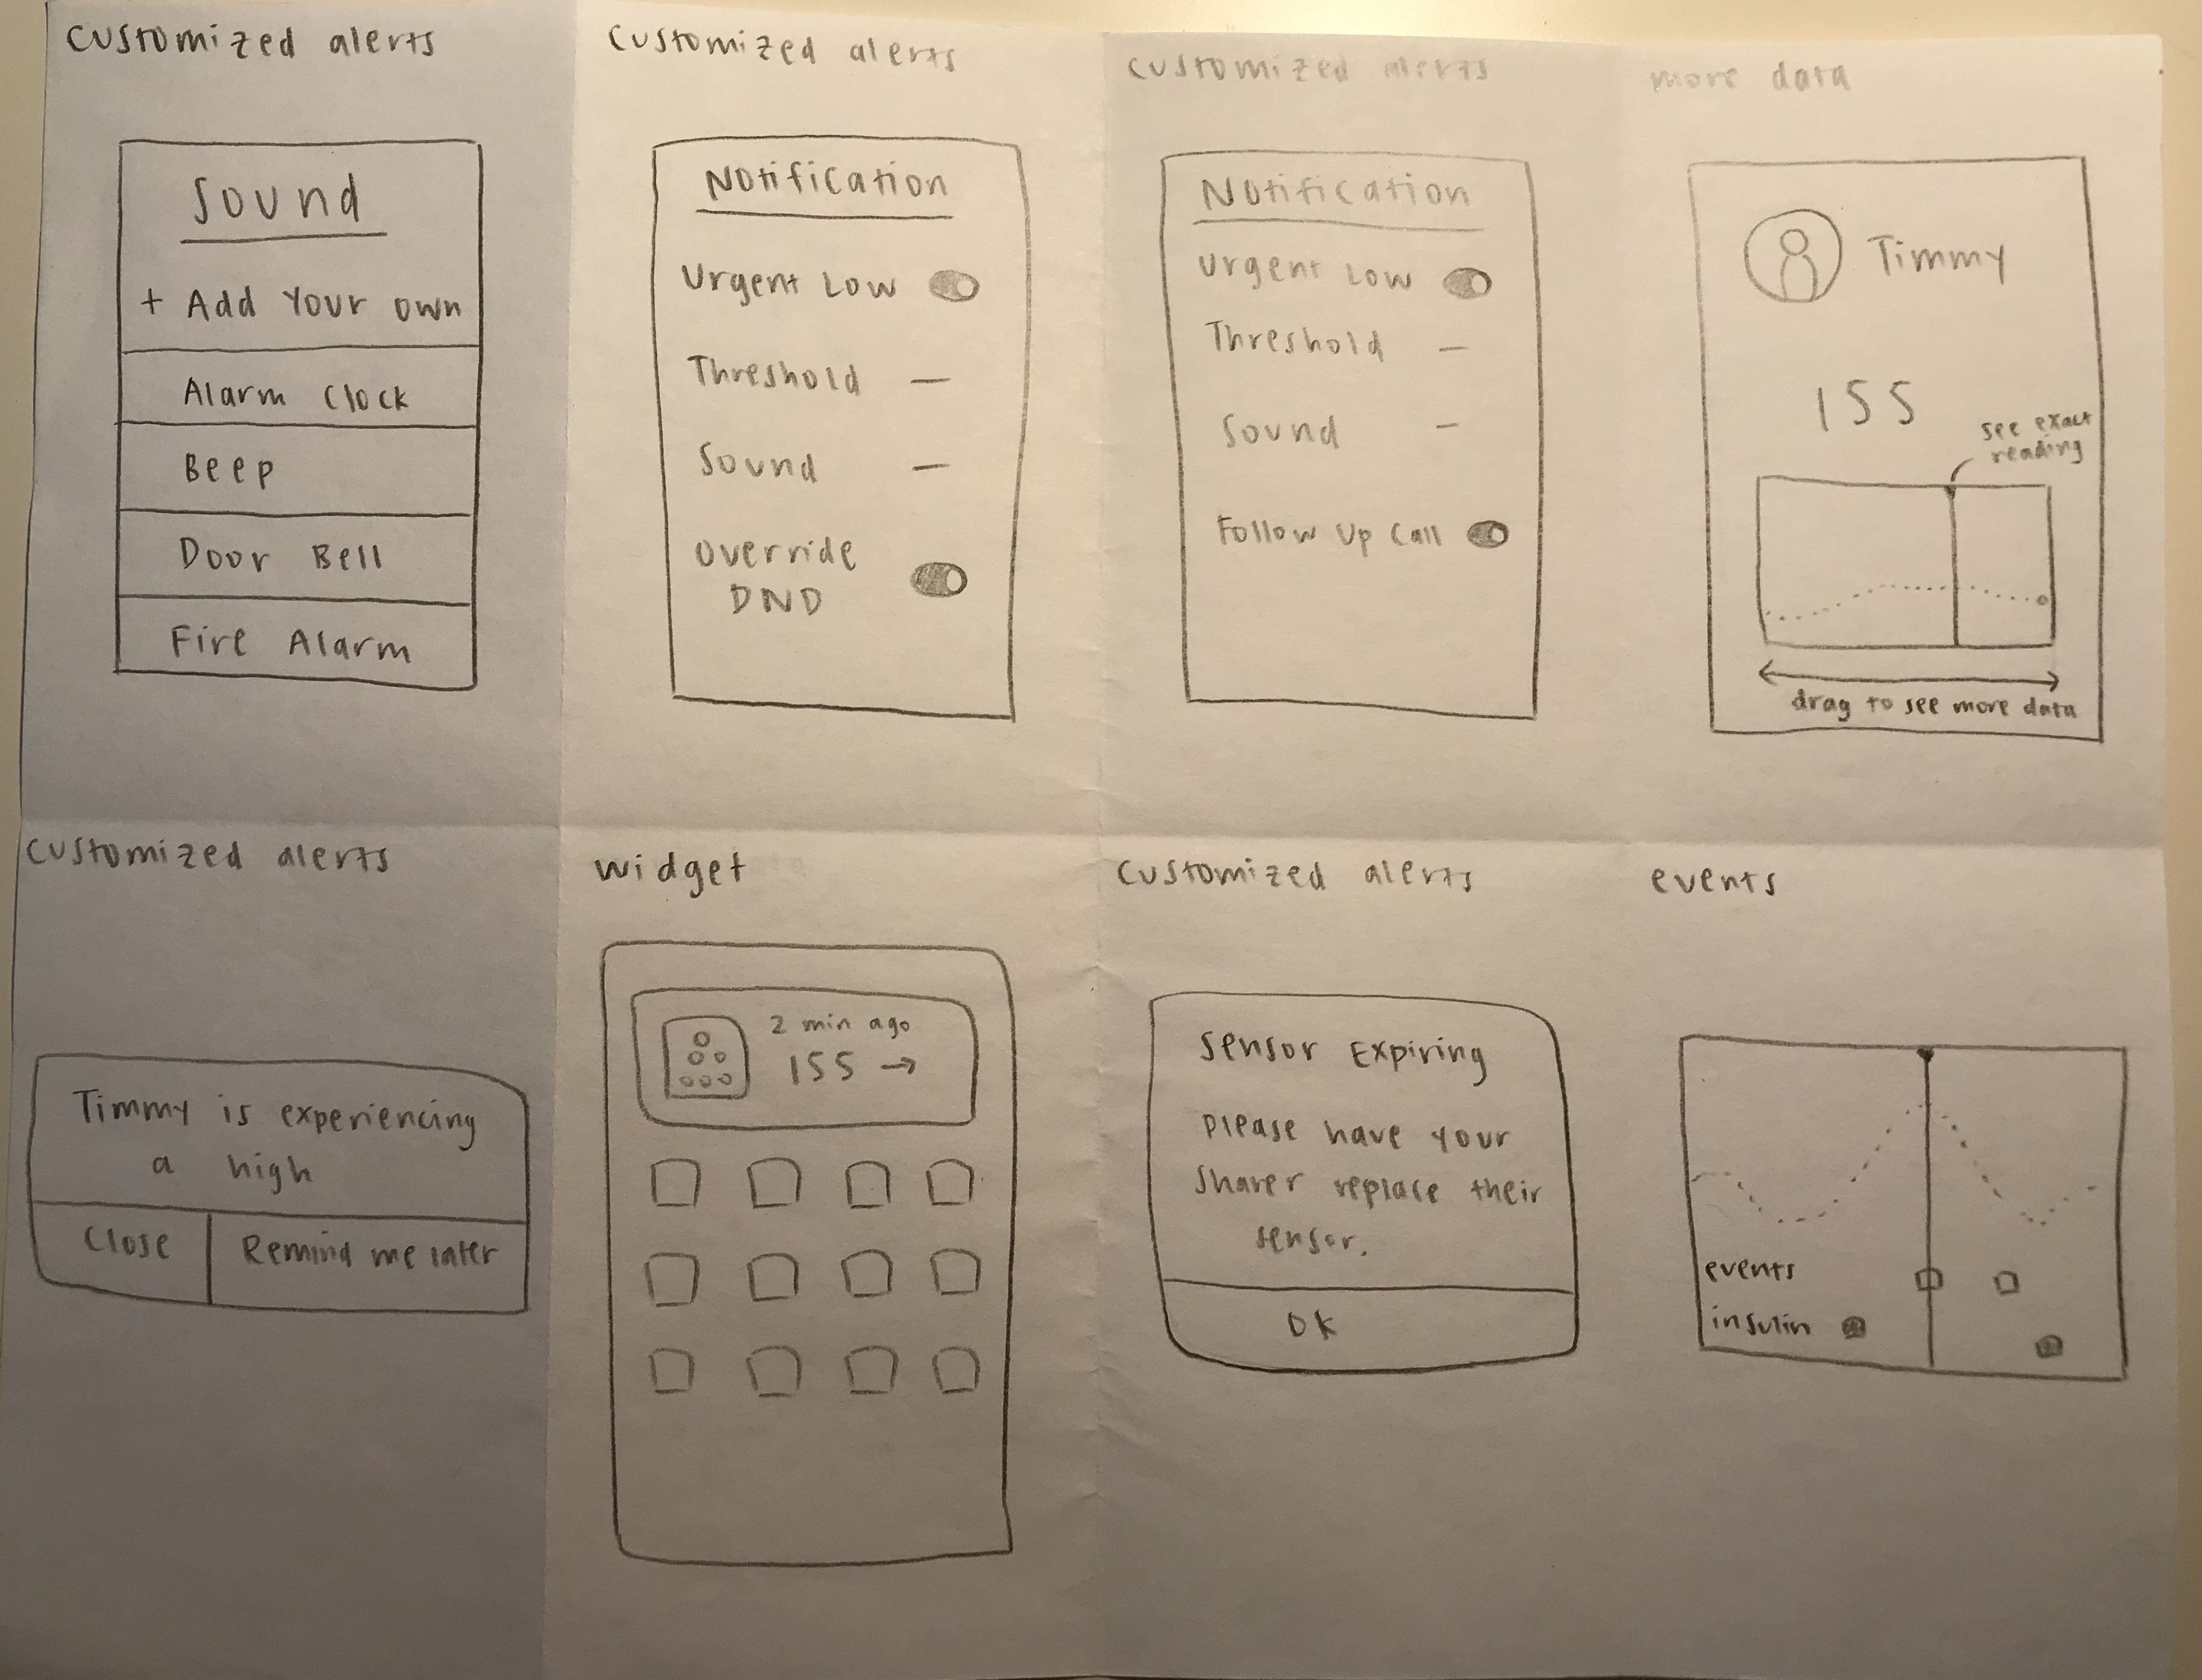 customized alerts
Sound
+ Add Your own
Alarm Clock
Beep
Door Bell
Fire Alarm
customized alerts
Notification
Urgent Low
Threshold —
Sound —
Override
DND
customized alerts
Notification
Urgent Low
Threshold —
Sound —
Follow Up Call
more data
Timmy
155
see exact
reading
drag to see more data
customized alerts
Timmy is experiencing
a high
Close
Remind me later
widget
2 min ago
155 →
customized alerts
Sensor Expiring
Please have your
sharer replace their
sensor.
OK
events
events
insulin